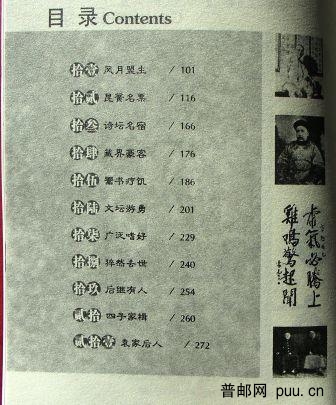 目录 Contents
拾壹 风月盟主 / 101
拾贰 昆黉名票 / 116
拾叁 诗坛名宿 / 166
拾肆 藏界豪客 / 176
拾伍 鬻书疗饥 / 186
拾陆 文坛游勇 / 201
拾柒 广泛嗜好 / 229
拾捌 猝然去世 / 240
拾玖 后继有人 / 254
贰拾 四子家楫 / 260
贰拾壹 袁家后人 / 272
虚气必腾上
鸡鸣惊起闻
普邮网 puu.cn